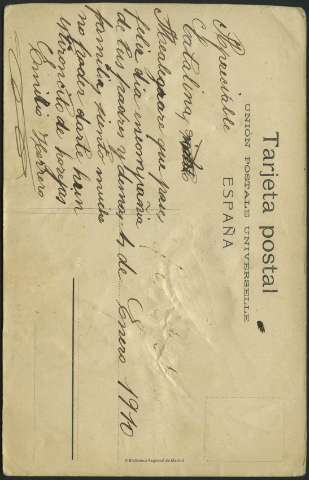 Tarjeta postal
UNIÓN POSTALE UNIVERSELLE
ESPAÑA
Apreciable
Catalina,
Mealegrare que pases
feliz dia encompañia
de tus padres y demas
familia, siento mucho
no poder darte hun
estironcito de horejas
Emilio Herrero
4 de Enero 1910
© Biblioteca Regional de Madrid